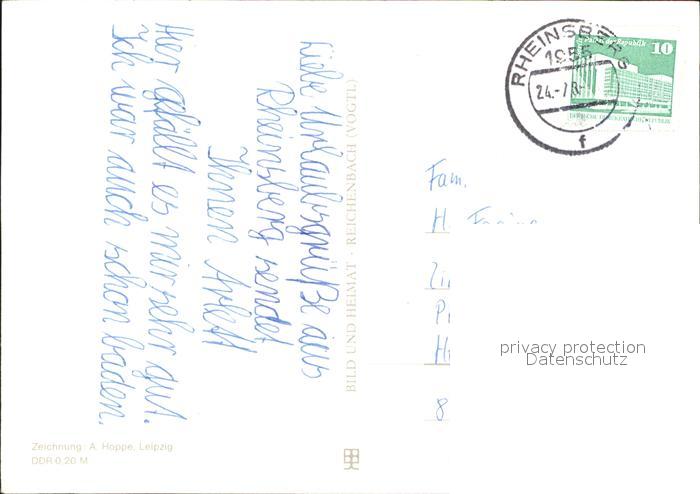 Liebe Urlaubsgrüße aus
Rheinsberg sendet
Ihnen Arlett
Hier gefällt es mir sehr gut.
Ich war auch schon baden.
BILD UND HEIMAT · REICHENBACH (VOGTL)
RHEINSBERG
1955
24.-7.8
f
Palast der Republik 10
DEUTSCHE DEMOKRATISCHE REPUBLIK
Fam.
H.
8
privacy protection
Datenschutz
Zeichnung: A. Hoppe, Leipzig
DDR 0,20 M